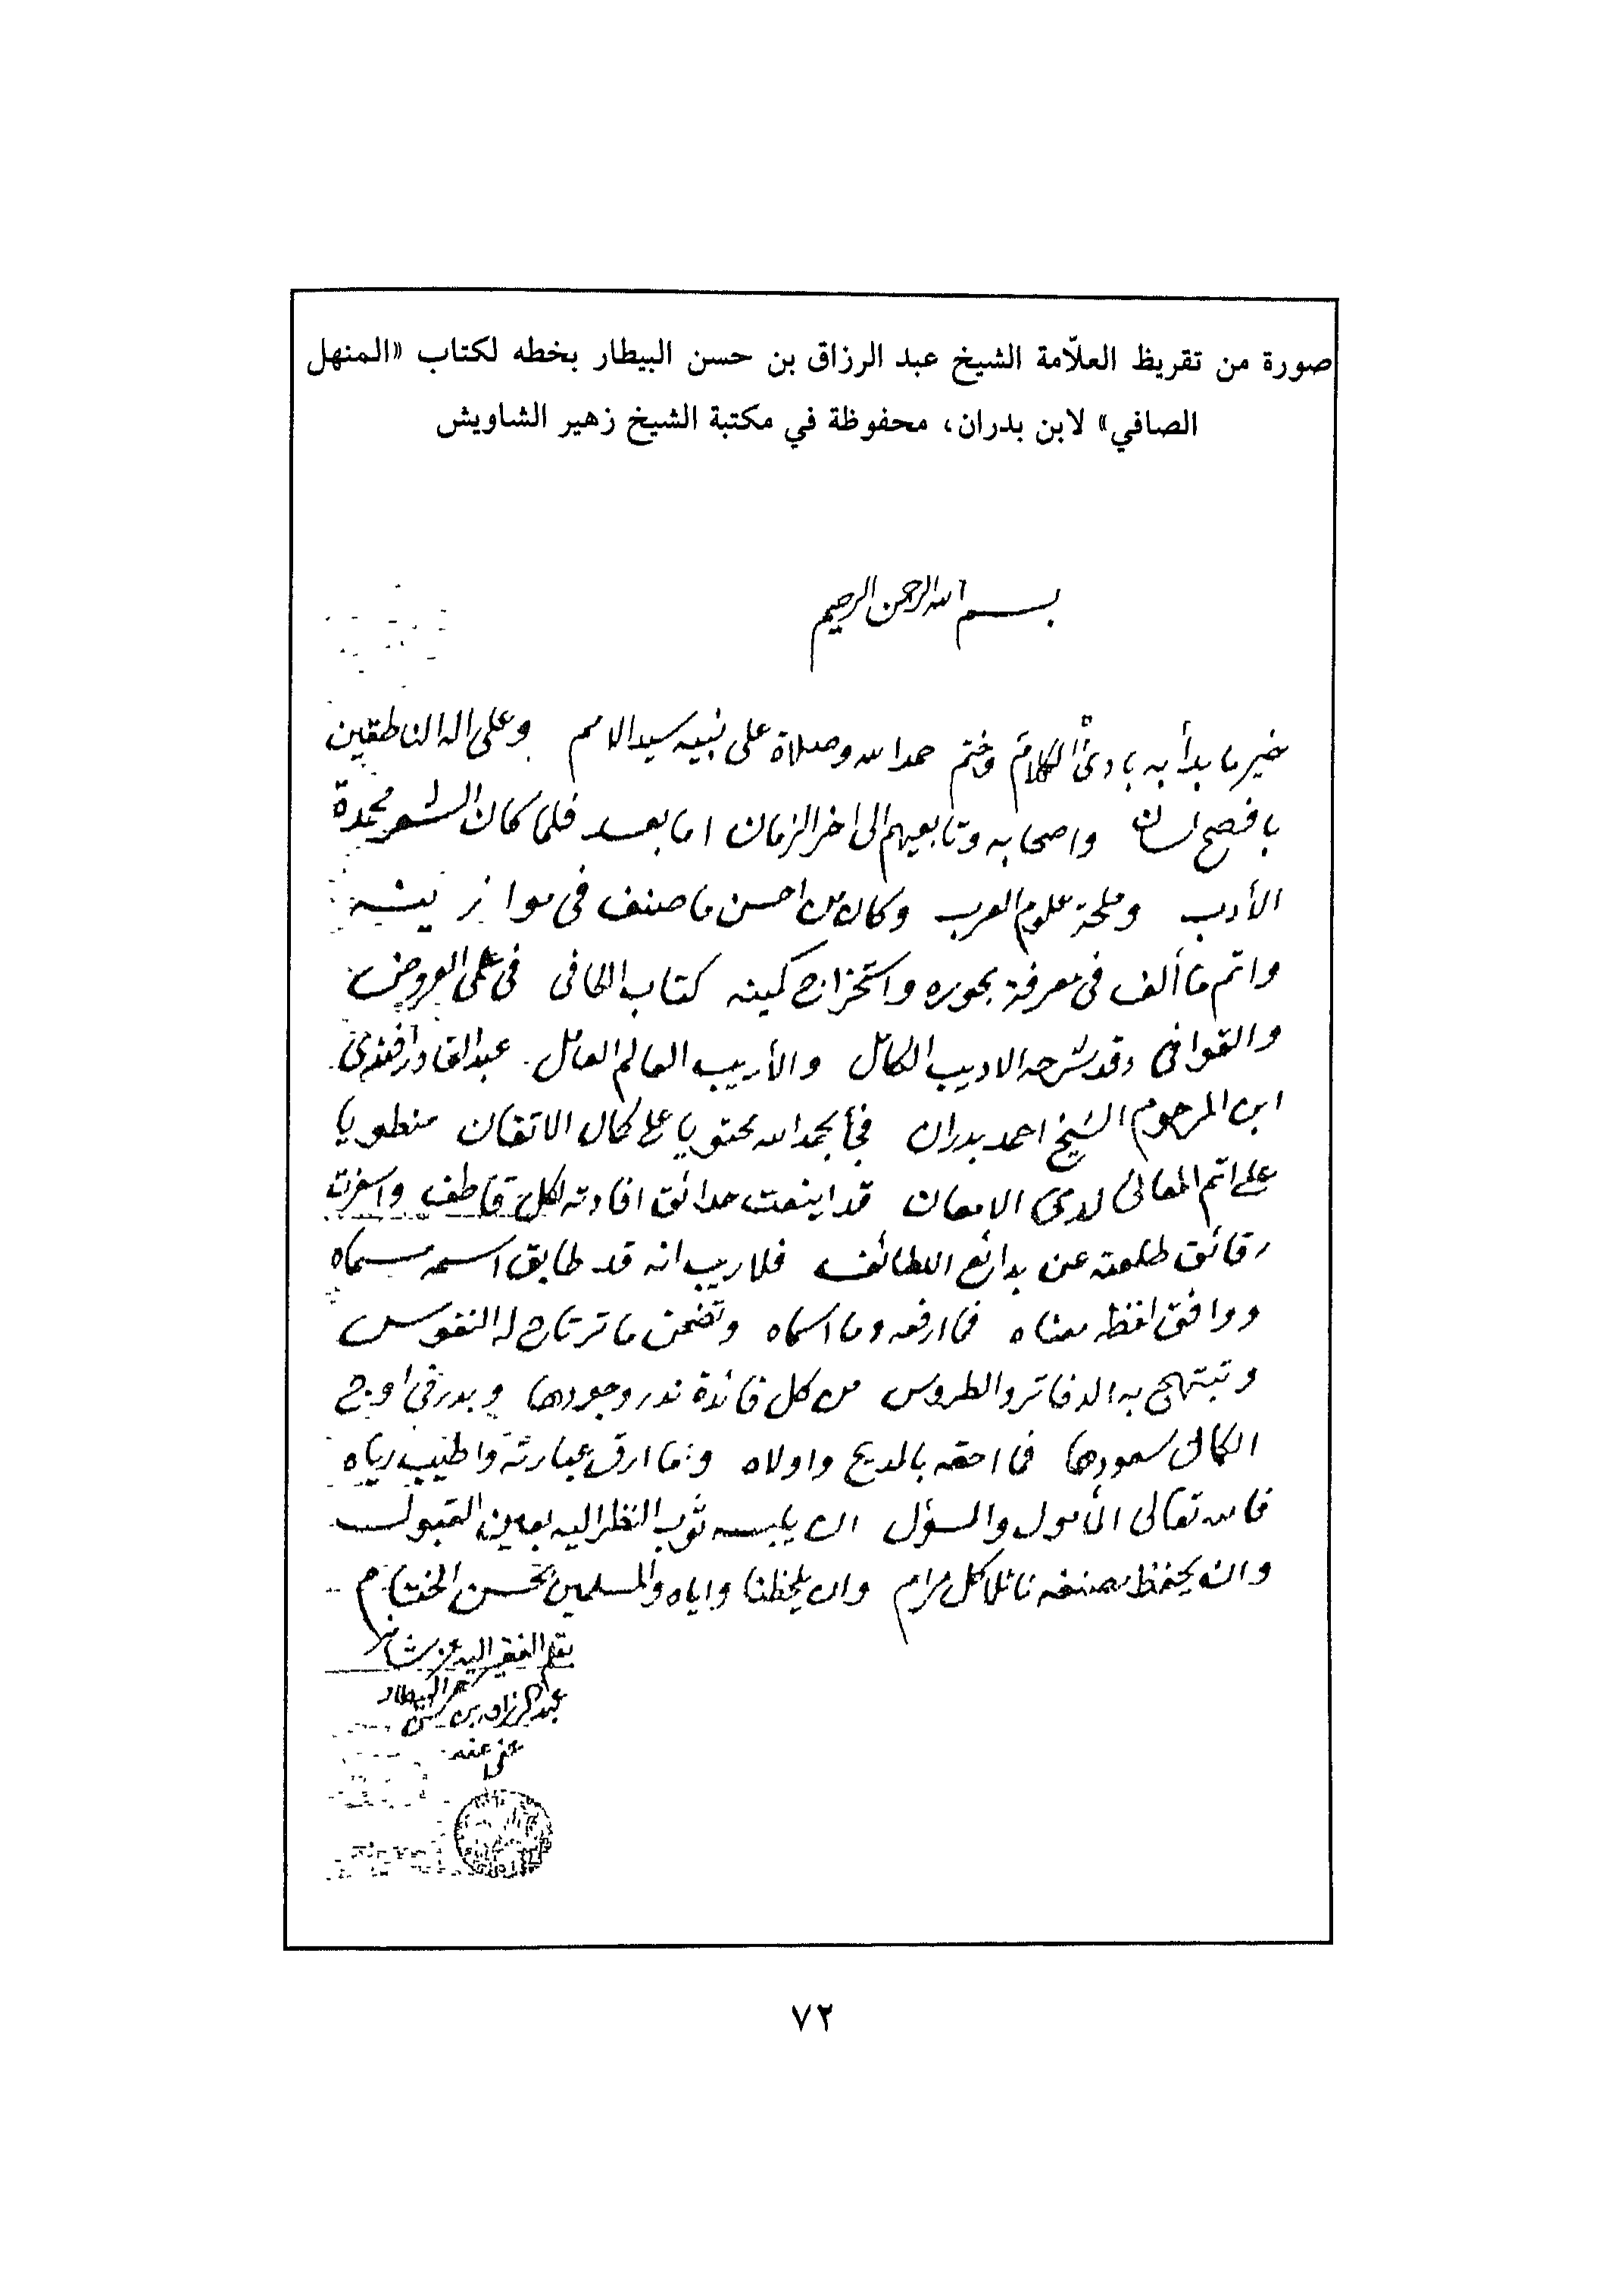 صورة من تقريظ العلّامة الشيخ عبد الرزاق بن حسن البيطار بخطه لكتاب «المنهل
الصافي» لابن بدران، محفوظة في مكتبة الشيخ زهير الشاويش
بسم الله الرحمن الرحيم
خير ما بدأ به بادئ الكلام وختم حمد الله وصلاة على نبيه سيد الامم وعلى اله الناطقين
بافصح لسان واصحابه وتابعيهم الى اخر الزمان اما بعد فلما كان الشعر محمدة
الأدب وملحة علوم العرب وكان من احسن ما صنف في موازينه
واتم ما ألف في معرفة بحوره واستخراج كمينه كتاب الكافى فى علمى العروض
والقوافى وقد شرحه الاديب الكامل والأريب العالم العامل عبد القادر افندى
ابن المرحوم الشيخ احمد بدران فجأ بحمد الله محتويا على كمال الاتقان منطويا
على اتم المعانى لدى الامعان قد اينعت حدائق افادته لكل قاطف واسفرت
رقائق طلعته عن بدائع اللطائف فلا ريب انه قد طابق اسمه مسماه
ووافق لفظه معناه فما ارفعه وما اسماه وتضمن ما ترتاح له النفوس
وتبتهج به الدفاتر والطروس من كل فائدة ندر وجودها وبدر فى اوج
الكمال سعودها فما احقه بالمديح واولاه وما ارق عبارته واطيب رياه
فالله تعالى المأمول والمسؤل ان يلبسه ثوب النظر اليه بعين القبول
وان يحفظ مصنفه نائلا كل مرام وان يلحظنا واياه والمسلمين بحسن الختام
بقلم الفقير اليه عز شانه
عبد الرزاق بن حسن البيطار
عفى عنه
٧٢